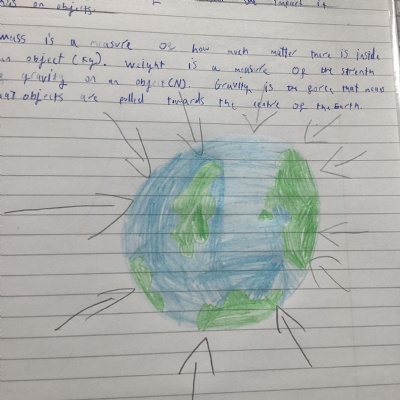 on objects.
impact it
mass is a measure of how much matter there is inside
an object (kg). weight is a measure of the strength
gravity on an object (N). Gravity is the force that means
objects are pulled towards the centre of the Earth.